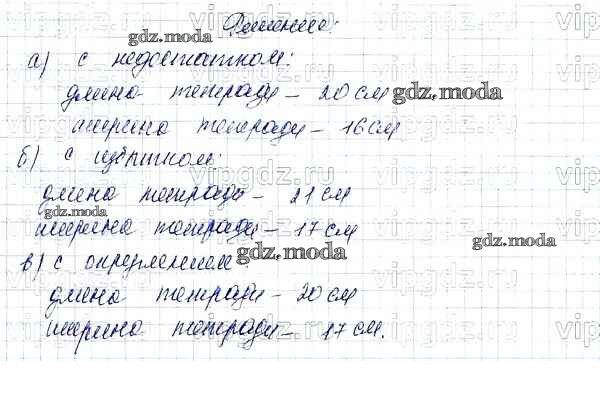 Решение:
gdz.moda
а) с недостатком:
длина тетради – 20 см gdz.moda
ширина тетради – 16 см
б) с избытком:
длина тетради – 21 см
gdz.moda
ширина тетради – 17 см
gdz.moda
gdz.moda
в) с округлением
длина тетради – 20 см
ширина тетради – 17 см.
gdz.moda
vipgdz.ru